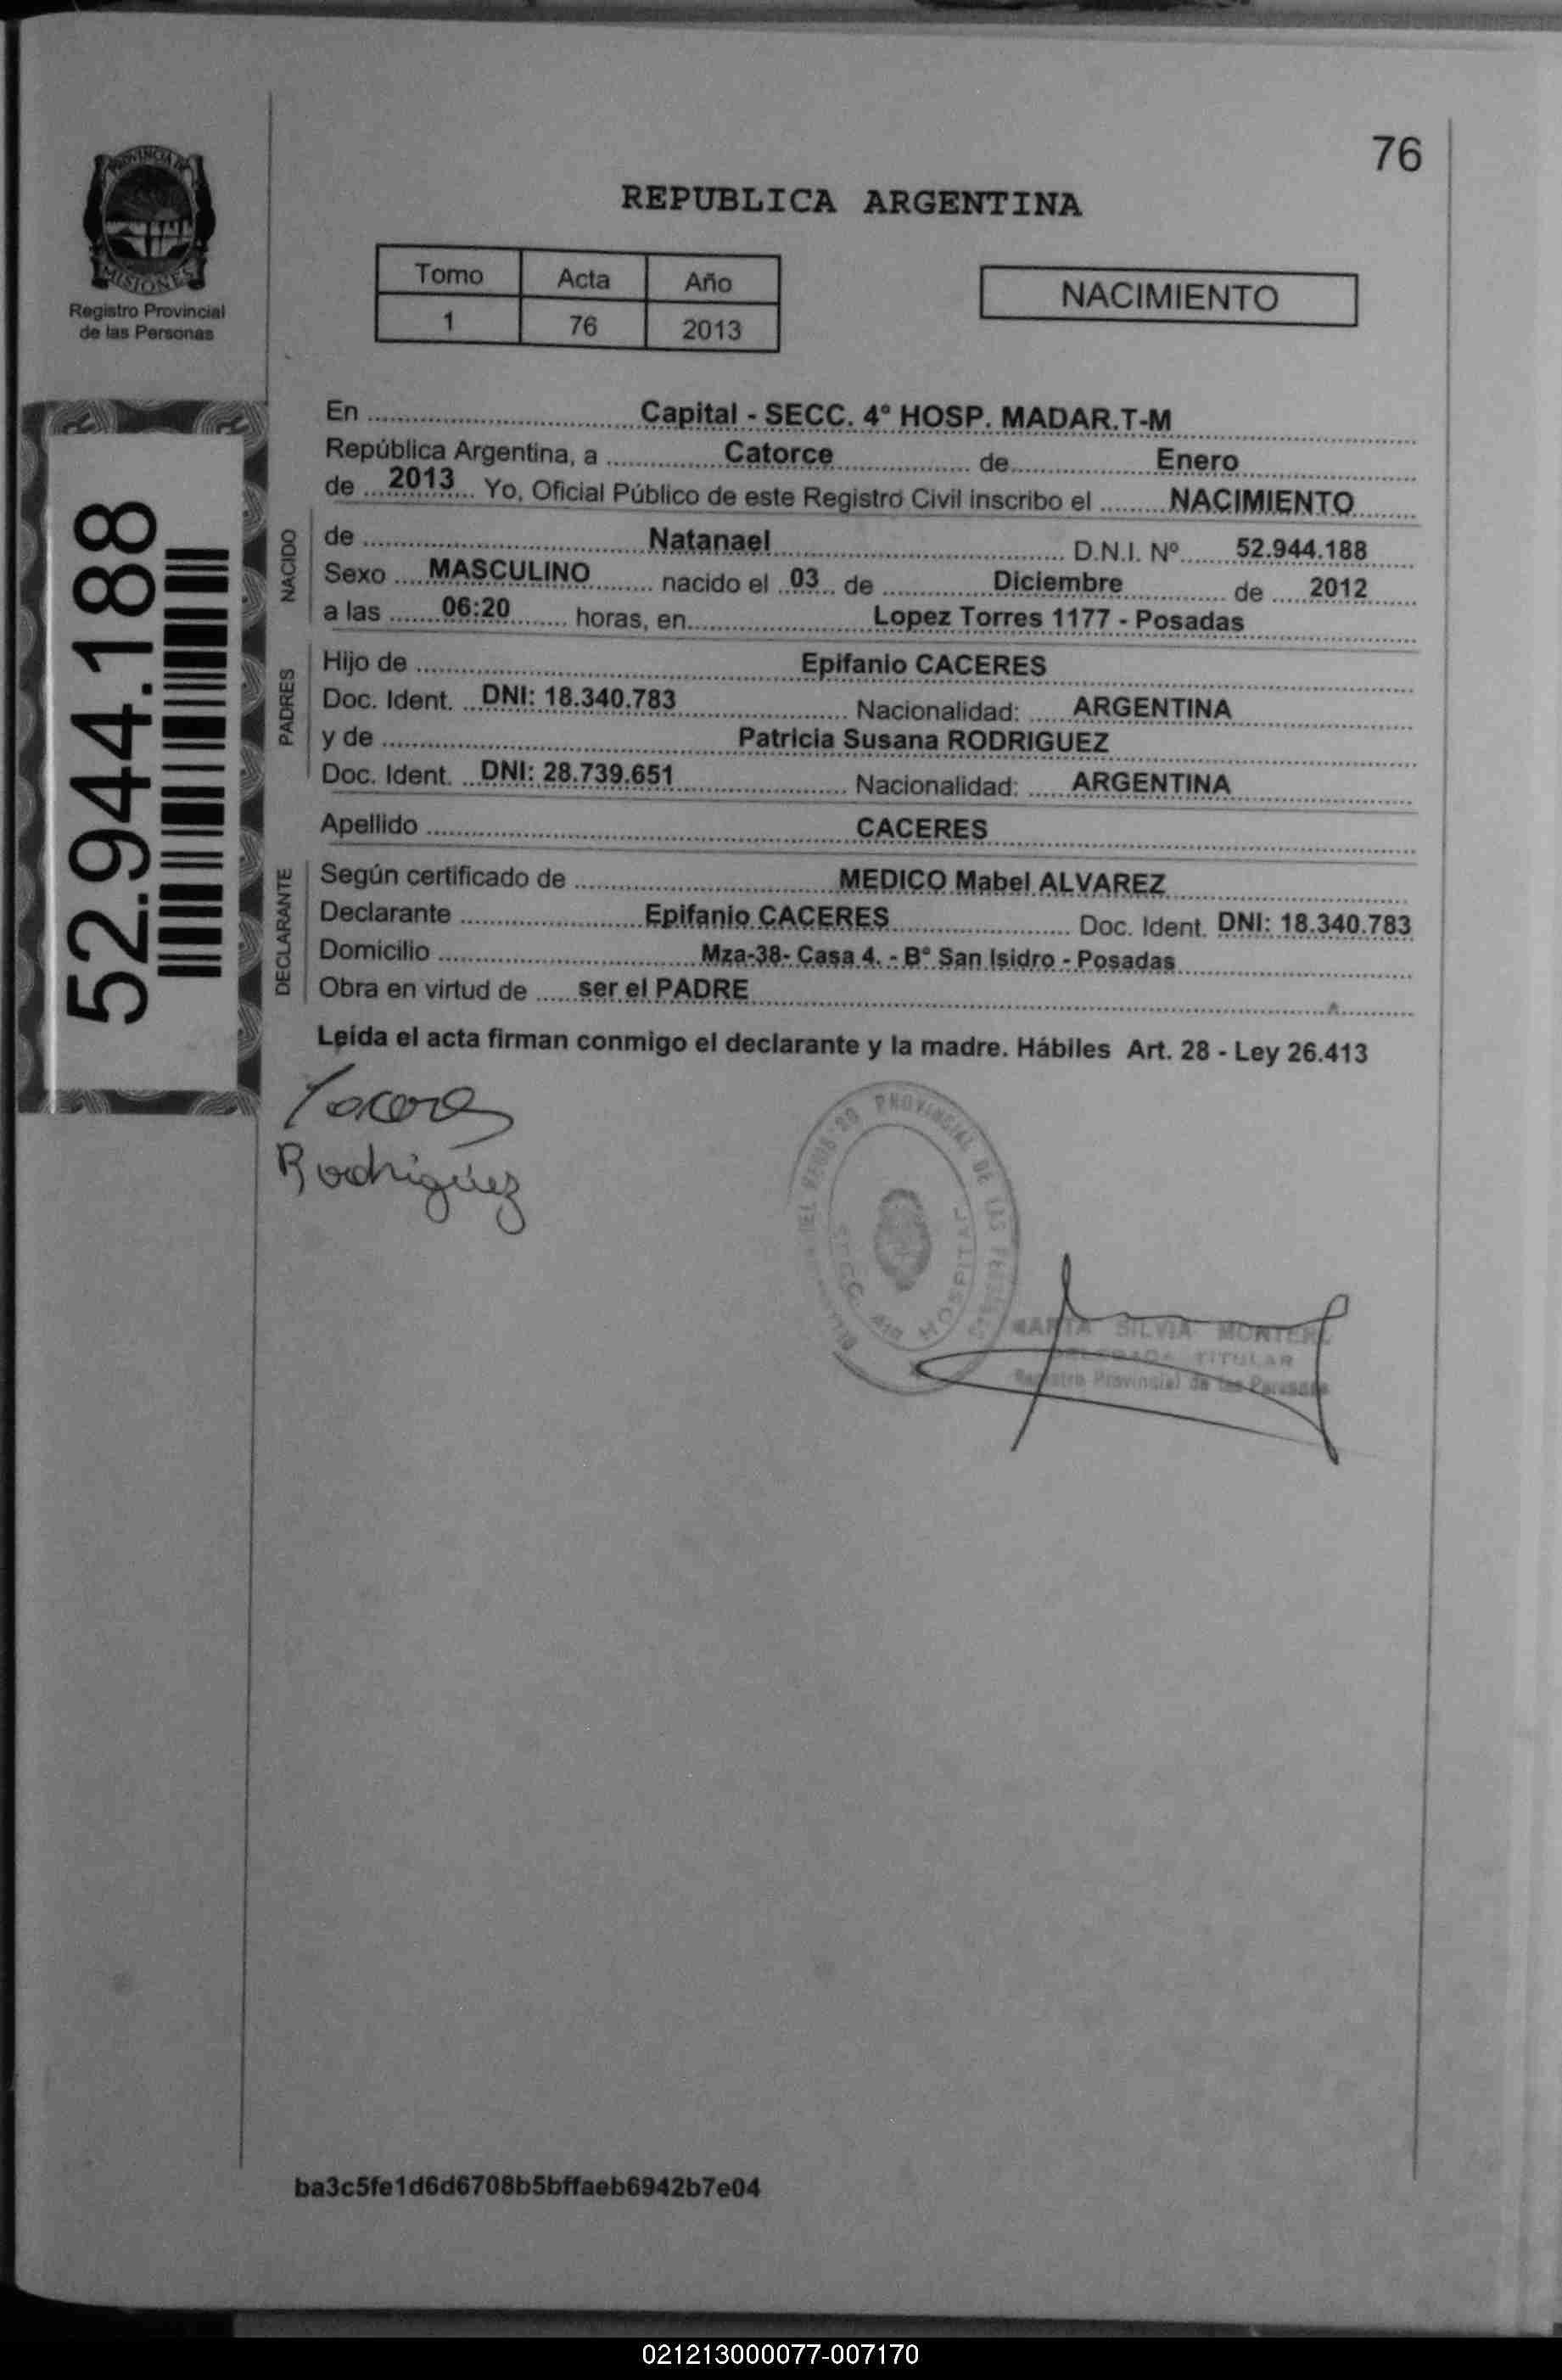 76
PROVINCIA DE
MISIONES
Registro Provincial
de las Personas
REPUBLICA ARGENTINA
Tomo Acta Año
1 76 2013
NACIMIENTO
52.944.188
En Capital - SECC. 4º HOSP. MADAR.T-M
República Argentina, a Catorce de Enero
de 2013 Yo, Oficial Público de este Registro Civil inscribo el NACIMIENTO
NACIDO
de Natanael D.N.I. Nº 52.944.188
Sexo MASCULINO nacido el 03 de Diciembre de 2012
a las 06:20 horas, en Lopez Torres 1177 - Posadas
PADRES
Hijo de Epifanio CACERES
Doc. Ident. DNI: 18.340.783 Nacionalidad: ARGENTINA
y de Patricia Susana RODRIGUEZ
Doc. Ident. DNI: 28.739.651 Nacionalidad: ARGENTINA
Apellido CACERES
DECLARANTE
Según certificado de MEDICO Mabel ALVAREZ
Declarante Epifanio CACERES Doc. Ident. DNI: 18.340.783
Domicilio Mza-38- Casa 4. - Bº San Isidro - Posadas
Obra en virtud de ser el PADRE
Leída el acta firman conmigo el declarante y la madre. Hábiles Art. 28 - Ley 26.413
Rodriguez
PROVINCIAL DE LAS
HOSPITAL
SILVIA
TITULAR
Registro Provincial de las Personas
ba3c5fe1d6d6708b5bffaeb6942b7e04
021213000077-007170